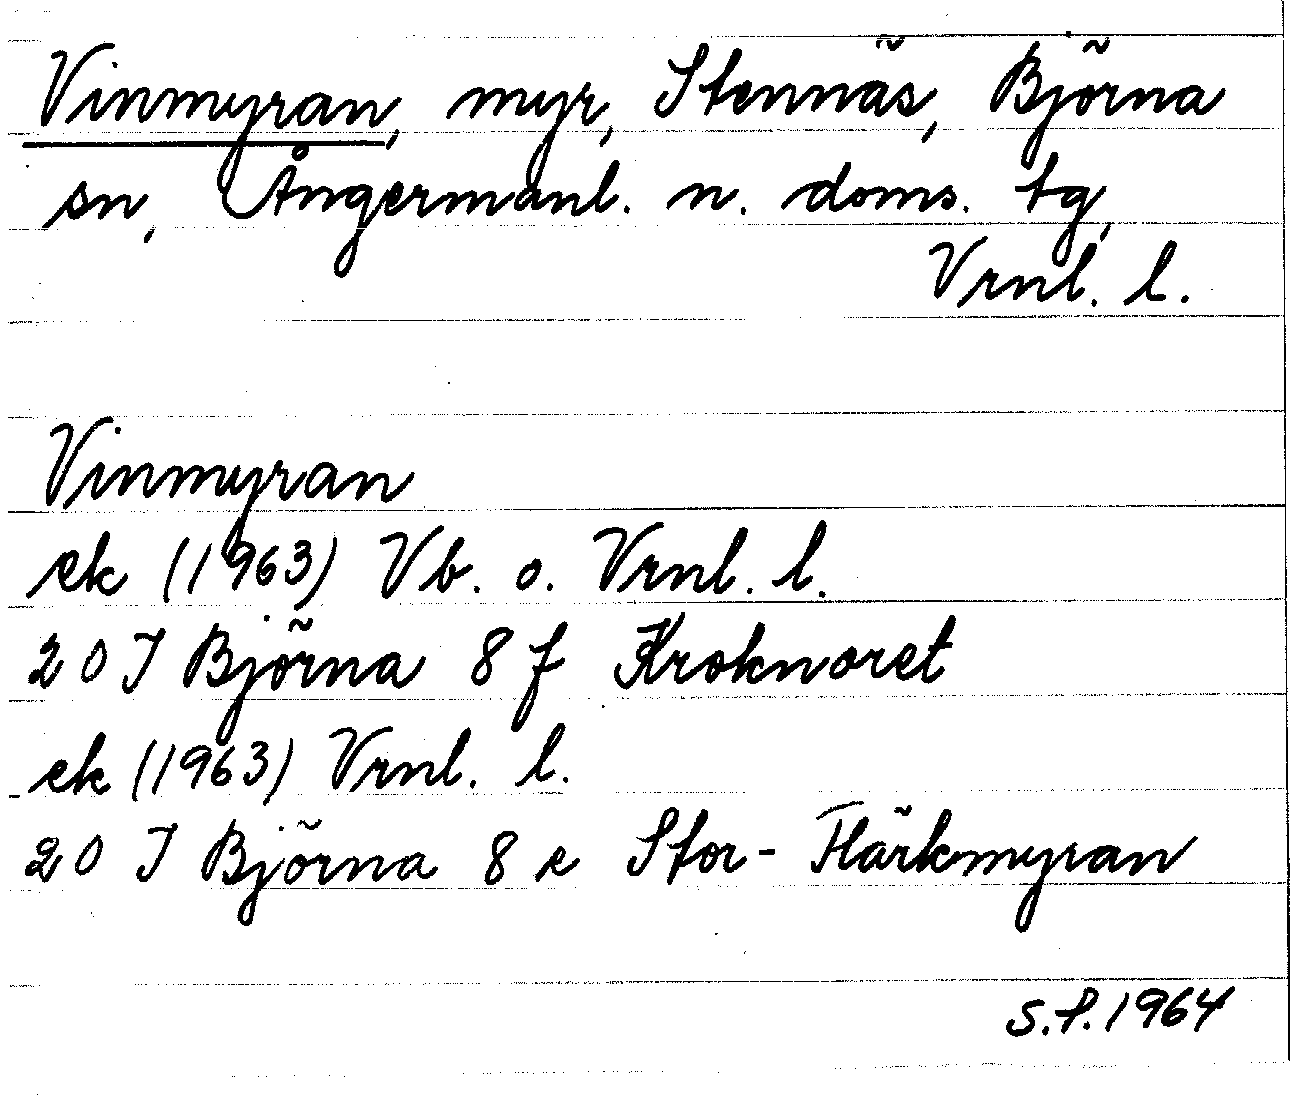 Vinmyran, myr, Stennäs, Björna
sn, Ångermanl. n. doms. tg,
Vrnl. l.
Vinmyran
ek (1963) Vb. o. Vrnl. l.
20 J Björna 8 f Kroknoret
ek (1963) Vrnl. l.
20 J Björna 8 e Stor-Flärkmyran
S.F. 1964